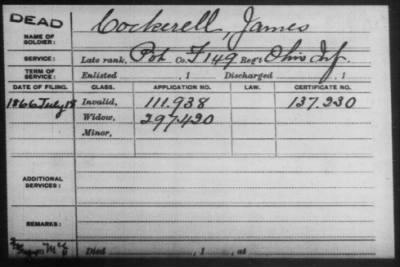 DEAD
NAME OF SOLDIER: Cockerell, James
SERVICE: Late rank, Pvt. Co. F 149 Reg't Ohio Inf.
TERM OF SERVICE: Enlisted , 1 Discharged , 1
DATE OF FILING. CLASS. APPLICATION NO. LAW. CERTIFICATE NO.
1866 July 18 Invalid, 111.938 137.230
Widow, 297420
Minor,
ADDITIONAL SERVICES:
REMARKS:
Died , 1 , at